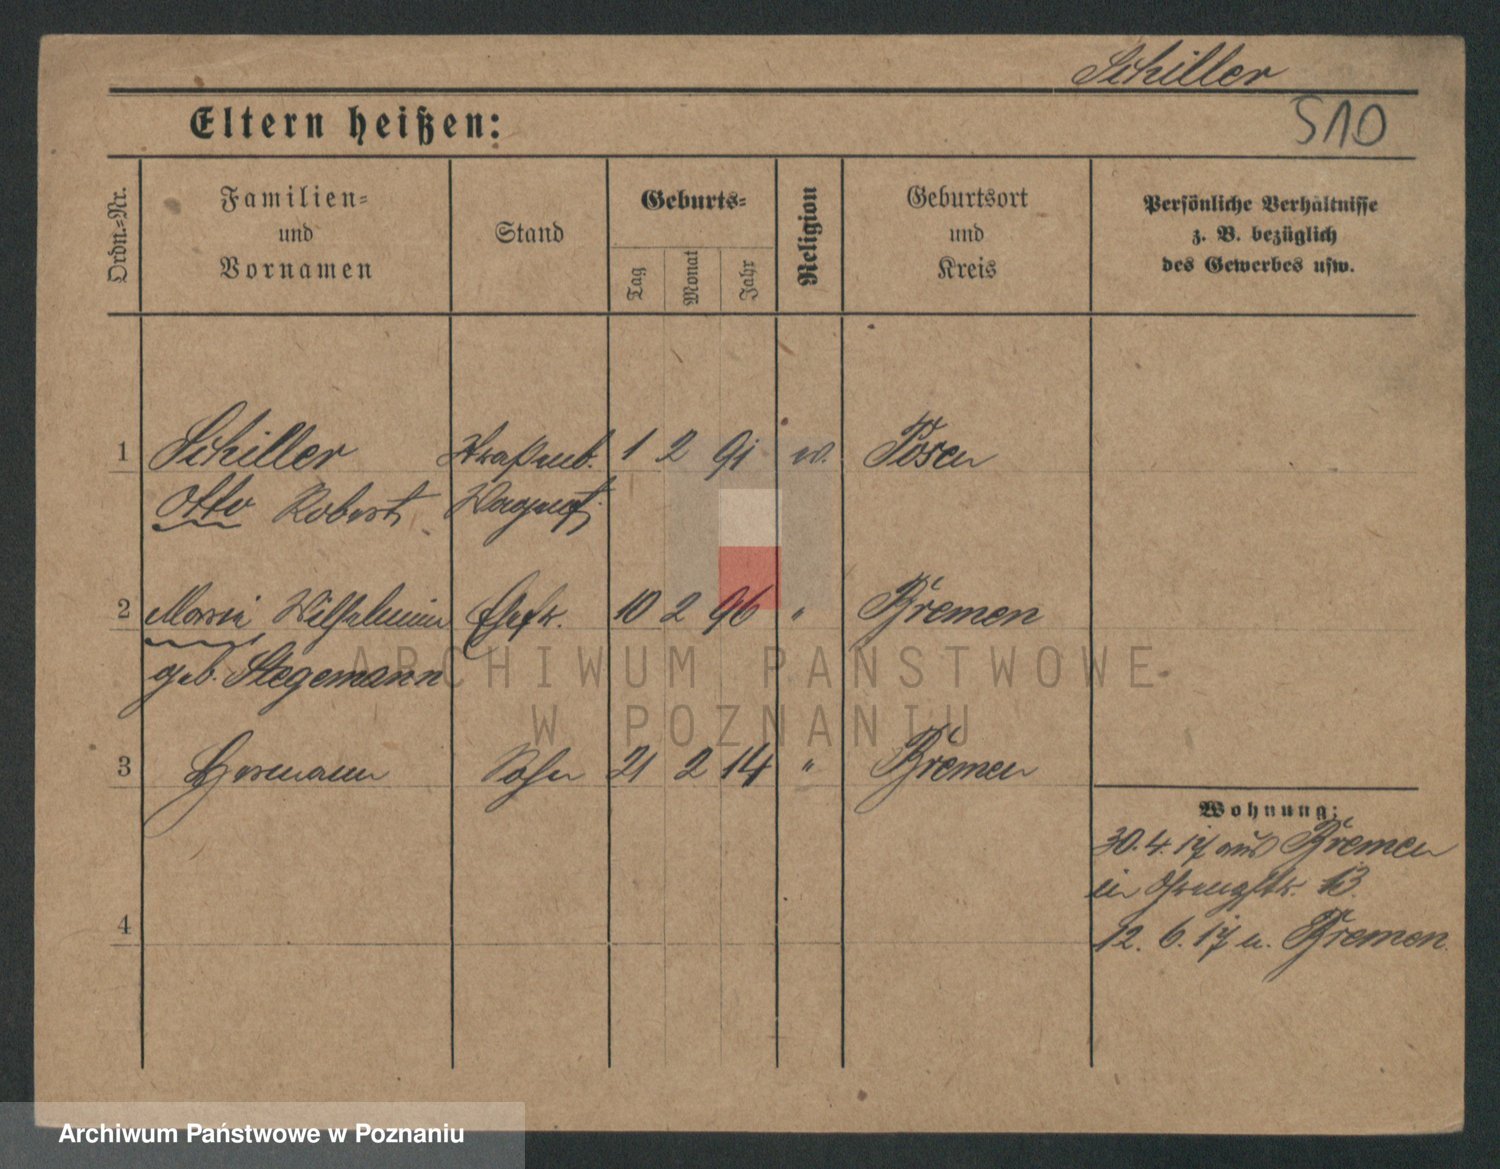 Schiller
510
Eltern heißen:
Ordn.-Nr.
Familien-
und
Vornamen
Stand
Geburts-
Tag
Monat
Jahr
Religion
Geburtsort
und
Kreis
Persönliche Verhältnisse
z. B. bezüglich
des Gewerbes usw.
1 Schiller Straßenb. 1 2 91 ev. Posen
Otto Robert
2 Maria Wilhelmine Ehefr. 10 2 96 " Bremen
geb. Stegemann
ARCHIWUM PAŃSTWOWE
W POZNANIU
3 Hermann Sohn 21 2 14 " Bremen
Wohnung:
30.4.17 aus Bremen
in 13.
4
12. 6. 17 n. Bremen
Archiwum Państwowe w Poznaniu